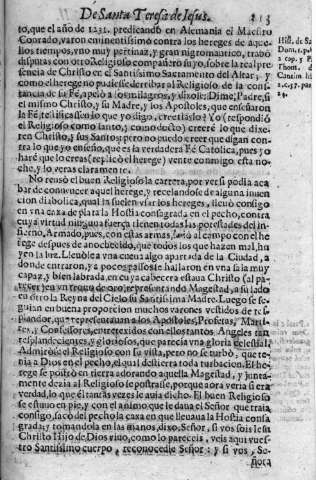 De Santa Teresa de Iesus.
213
to, que el año de 1231. predicando en Alemania el Maestro
Conrado, varon eminentissimo contra los hereges de aque-
llos tiempos, vno muy pertinaz, y gran nigromantico, trabò
disputas con otro Religioso compañero suyo, sobre la real pre-
sencia de Christo en el Santissimo Sacramento del Altar; y
como el herege no pudiesse derribar al Religioso de la cons-
tancia de la Fè, apelò a los milagros, y dixole: Dime, Padre, si
el mismo Christo, y su Madre, y los Apostoles, que enseñaron
la Fè testificassen lo que yo digo, creeriaslo? Yo (respondiò
el Religioso como santo, y como docto) creerè lo que dixe-
ren Christo, y sus Santos; pero no puedo creer que digan con-
tra lo que yo enseño, que es la verdadera Fè Catolica, pues yo
harè que lo creas (replicò el herege) vente conmigo esta no-
che, y lo veràs claramente.
No reusò el buen Religioso la carrera, por ver si podia aca-
bar de convencer aquel herege, y recelandose de alguna inuen-
cion diabolica, qual la suelen vsar los hereges, lleuò consigo
en vna caxa de plata la Hostia consagrada en el pecho, contra
cuya virtud ninguna fuerça tienen todas las potestades del in-
fierno, Armado, pues, con estas armas, saliò al campo con el he
rege despues de anochecido, que todos los que hazen mal, hu
yen la luz. Lleuòle a vna cueua algo apartada de la Ciudad, a
donde entraron, y a pocos passos se hallaron en vna sala muy
capaz, y bien labrada, en cuya cabecera estaua Christo (al pa-
recer) en vn trono de oro, representando Magestad, a su lado
en otro la Reyna del Cielo su Santissima Madre. Luego se se-
guian en buena proporcion muchos varones vestidos de res-
plandor, que representauan a los Apostoles, Profetas, Marti-
res, y Confessores, entretexidos con ellos tantos Angeles tan
resplandecientes, y gloriosos, que parecia vna gloria celestial.
Admiròse el Religioso con su vista, pero no se turbò, que te-
nia a Dios en el pecho, el qual destierra toda turbacion. El he-
rege se postrò en tierra adorando aquella Magestad, y junta-
mente dezia al Religioso se postrasse, porque aora veria si era
verdad, lo que èl tantas vezes le auia dicho. El buen Religioso
se estuuo en pie, y con el animo que le daua el Señor que traia
consigo, sacò del pecho la caxa en que lleuaua la Hostia consa
grada; y tomandola en las manos, dixo, Señor, si vos sois Iesu
Christo Hijo de Dios viuo, como lo pareceis, veis aqui vues-
tro Santissimo cuerpo, reconocedle Señor: y si vos, Se-
ñora
Hist. de Sã
Dom. 1. p.
a cap. y
Thom.
Cantim. li
2. c. 57. par
24.